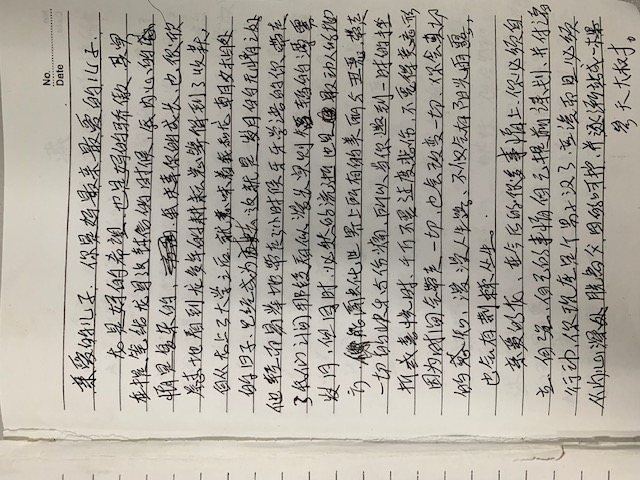 No.
Date
亲爱的儿子，你是妈最亲最爱的儿子.
龙是妈的希望，也是妈的骄傲，其实
在提笔给龙写这封信的时候，我内心的
情是复杂的，我庆幸你的成长，也很欣
慰地看到龙多年的耕耘总算得到了收获，
自从龙上了大学之后，就意味着我和龙朝夕相处
的日子，已经成为过去，这就是岁月的无情之处
他轻而易举地带走了小时候牙牙学语的你，带走
了我们之间那段看似漫长实则短暂的
岁月，但同时，必然的流逝也是最动人的地
方，他能风化世界上所有的美丽与丑恶，带走
一切的快乐与伤痛，所以当你遇到一时的挫
折或喜悦时，千万不要过度悲伤，不要得意忘形
因为时间会带走一切，也会改变一切，你会真切
的感知，漫漫人生路，不仅会有阳光雨露，
也会有荆棘丛生。
亲爱的龙，在今后的很多事情上，你必须自
立、自强，自己的事情自己提前谋划，并付诸
行动，你现在是个男子汉了，应该而且必须
从内心深处脱离父母的呵护，并逐渐站成一棵
参天大树。